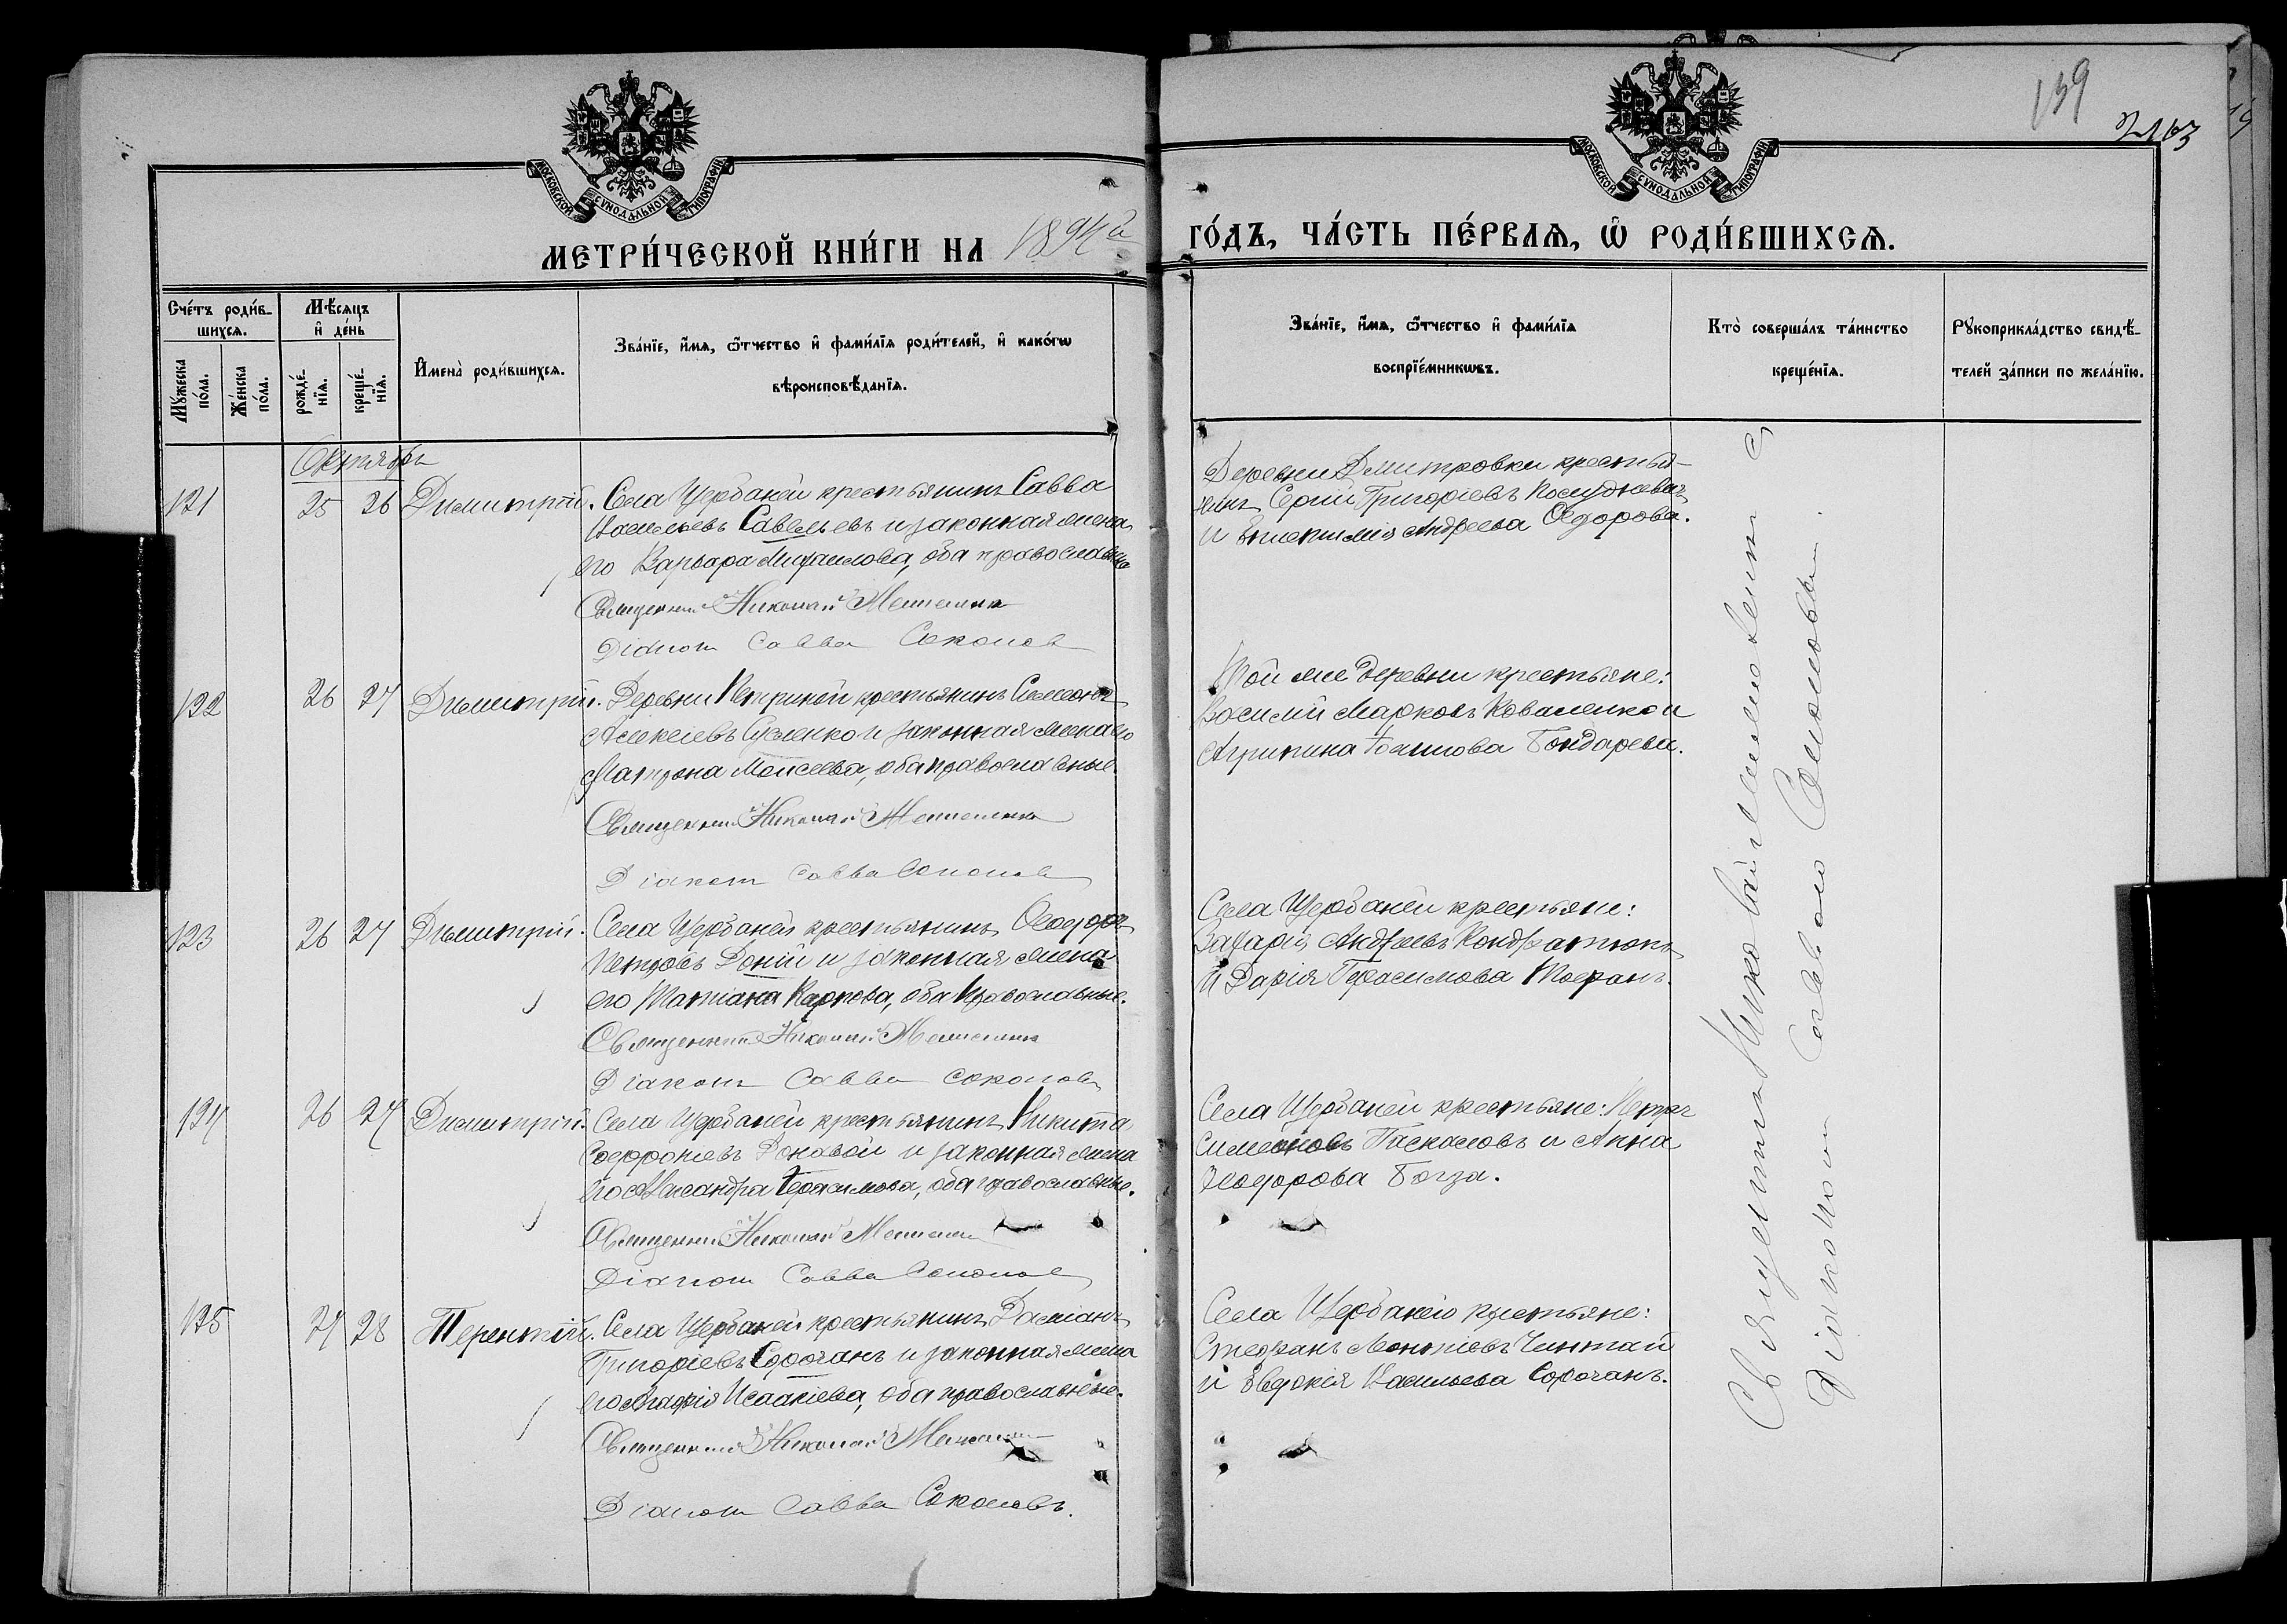 139
МОСКОВСКОЙ СѴНОДАЛЬНОЙ ТИПОГРАФІИ
МОСКОВСКОЙ СѴНОДАЛЬНОЙ ТИПОГРАФІИ
МЕТРИ́ЧЕСКОЙ КНИ́ГИ НА 1894й ГО́ДЪ, ЧА́СТЬ ПЕ́РВАѦ, Ѿ РОДИ́ВШИХСѦ.
Сче́тъ роди́в-
шихсѧ.
Мꙋ́жеска по́ла.
Же́нска по́ла.
Мѣ́сѧцъ
и҆ де́нь
рожде́-нїѧ.
креще́-нїѧ.
И҆мена̀ роди́вшихсѧ.
Зва́нїе, и҆́мѧ, ѻ҆́тчество и҆ фами́лїѧ роди́телей, и҆ како́гѡ
вѣроисповѣ́данїѧ.
Зва́нїе, и҆́мѧ, ѻ҆́тчество и҆ фами́лїѧ
воспрїе́мникѡвъ.
Кто̀ соверша́лъ та́инство
креще́нїѧ.
Рꙋкоприкла́дство свидѣ́-
телей за́писи по жела́нїю.
Октябрь
121 25 26 Димитрій. Села Щербаней крестьянинъ Савва
Васильевъ Савельевъ и законная жена
его Варвара Михаилова, оба православные
Священникъ Николай
Діаконъ Савва Соколовъ
Деревни Дмитровки крестья-
нинъ Сергій Григоріевъ
и Андреева Ѳедорова.
122 26 27 Димитрій. Деревни Петриной крестьянинъ Симеонъ
Алексіевъ и законная жена его
Матрона Моисеева, оба православные.
Священникъ Николай
Діаконъ Савва Соколовъ
Той же деревни крестьяне:
Василій Марковъ Коваленко и
Агрипина Бондарева.
123 26 27 Димитрій. Села Щербаней крестьянинъ Ѳеодоръ
Петровъ Доній и законная жена
его Татіана Карпова, оба православные.
Священникъ Николай
Діаконъ Савва Соколовъ
Села Щербаней крестьяне:
Захарія Андреевъ Кондратюкъ
и Дарія Герасимова
124 26 27 Димитрій. Села Щербаней крестьянинъ Никита
Софроніевъ и законная жена
его Александра Герасимова, оба православные.
Священникъ Николай
Діаконъ Савва Соколовъ
Села Щербаней крестьяне: Петръ
Симеоновъ Паскаловъ и Анна
Ѳеодорова
125 27 28 Терентій. Села Щербаней крестьянинъ Даміанъ
Григоріевъ Сорочанъ и законная жена
его Агафія Исаакіева, оба православные.
Священникъ Николай
Діаконъ Савва Соколовъ.
Села Щербаней крестьяне:
Стефанъ Леонтіевъ Чинтай
и Евдокія Васильева Сорочанъ.
Священникъ Николай съ
Діакономъ Саввою Соколовымъ.